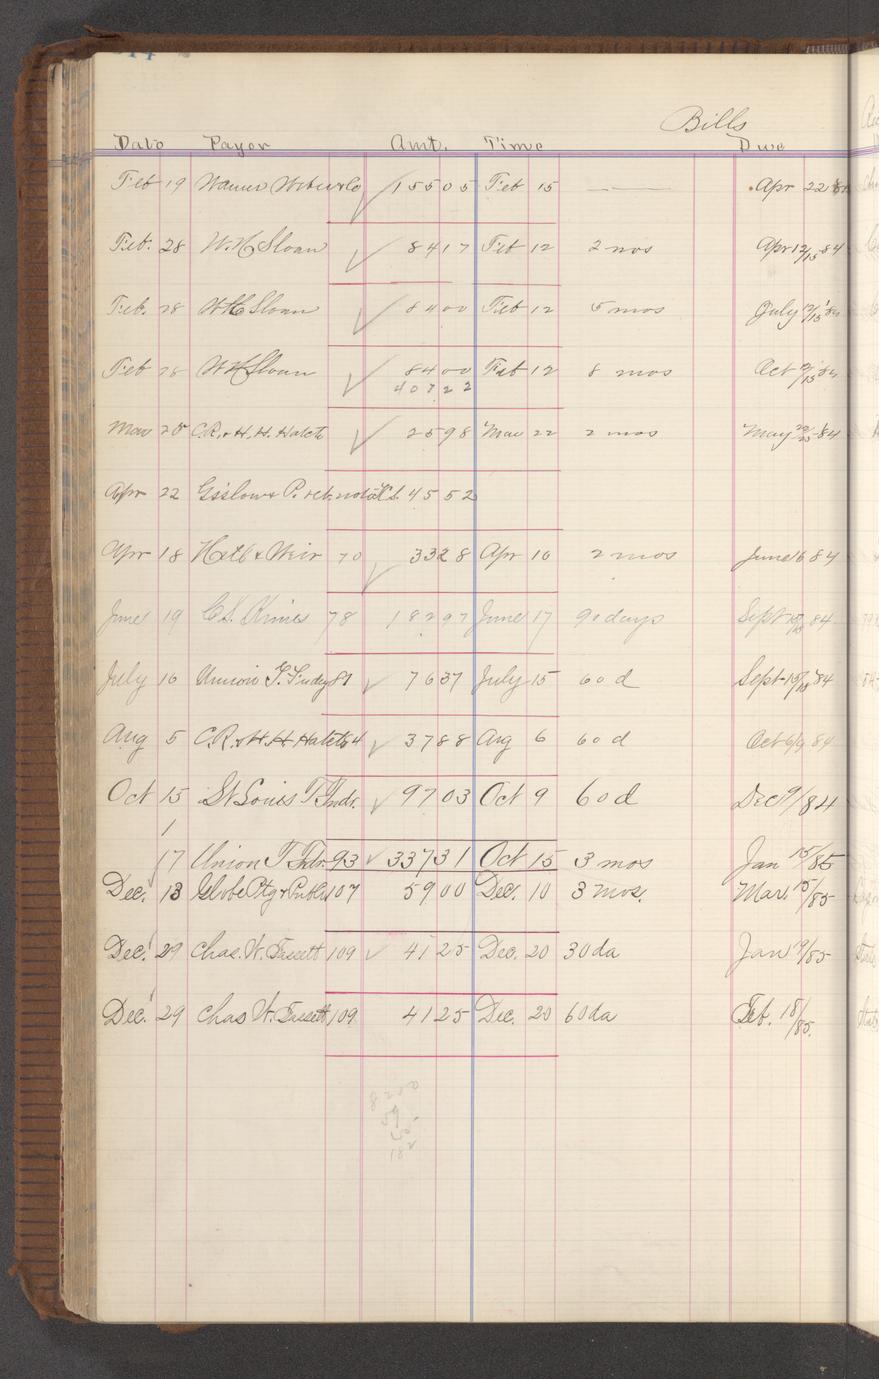 Bills
Date Payor Amt. Time Due
Feb 19 155 05 Feb 15 — Apr 22
Feb. 28 W. H. Sloan 84 17 Feb 12 2 mos Apr 12/15 84
Feb. 28 W H Sloan 84 00 Feb 12 5 mos July 12/15 '84
Feb 28 W H Sloan 84 00 Feb 12 8 mos Oct 12/15 84
407 22
Mar 25 C.R. & H. H. Hatch 25 98 Mar 22 2 mos May 22/25 84
Apr 22 & P. 45 52
Apr 18 & Weir 70 33 28 Apr 16 2 mos June 16 84
June 19 C. S. 78 182 97 June 17 90 days Sept 84
July 16 Union T. Fndry 81 76 37 July 15 60 d Sept 84
Aug 5 C.R. & H. H. Hatch 37 88 Aug 6 60 d Oct 6/9 84
Oct 15 St Louis T. Fndr. 97 03 Oct 9 60 d Dec 9/84
17 Union T. Fdr. 93 337 31 Oct 15 3 mos Jan 15/85
Dec. 13 Globe Ptg & 107 59 00 Dec. 10 3 mos. Mar. 15/85
Dec. 29 Chas. W. 109 41 25 Dec. 20 30 da Jan 19/85
Dec. 29 Chas W. 109 41 25 Dec. 20 60 da Feb. 18/85.